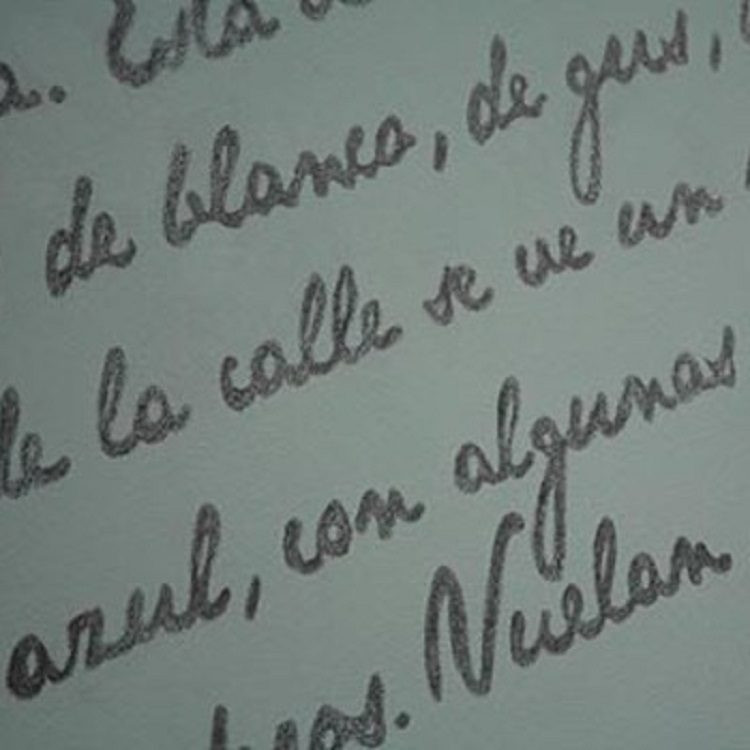 a. Esta
de blanco, de gris,
de la calle se ve un
azul, con algunas
Vuelan